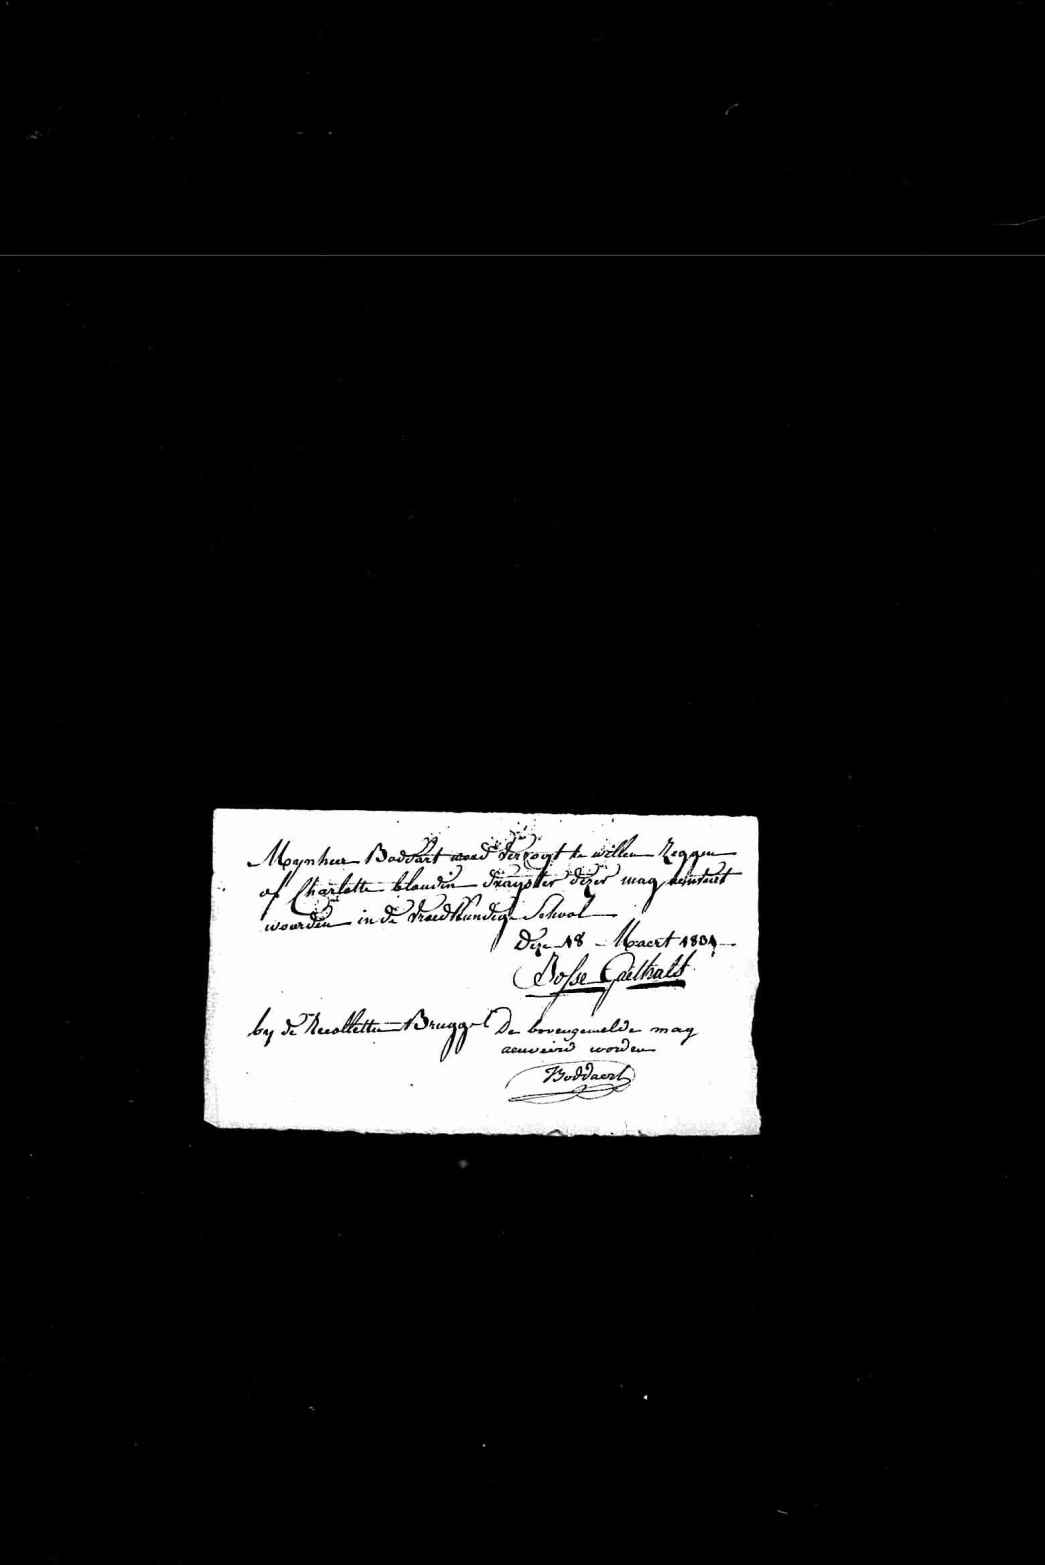 Mynheer Boddart word verzogt te willen Zeggen
of Charlotte blondin draagster dezer mag
woorden in de vroedkundige School
deze 18 Maert 1804
Bosse Goethals
by de Recolletten Brugge
De bovengemelde mag
aenveird worden
Boddaert